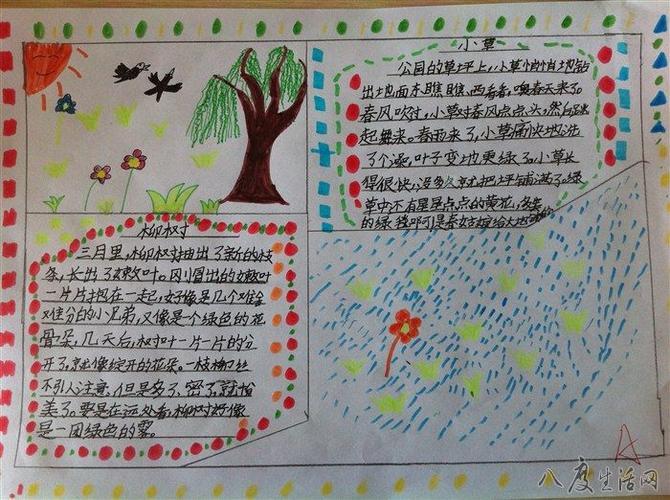 小草
公园的草坪上，小草悄悄地钻
出地面东瞧瞧，西看看，嗅春天来了。
春风吹过，小草对春风点点头，然后跳
起舞来。春雨来了，小草痛快地洗
了个澡，叶子变地更绿了。小草长
得很快，没多久就把坪铺满了。绿
草中不有星星点点的黄花，
的绿毯叩可是春姑娘给大地
柳树
三月里，柳树抽出了新的枝
条，长出了嫩叶。刚冒出的嫩叶
一片片抱在一起，好像是几个难舍
难分的小兄弟，又像是个绿色的花
骨朵，几天后，树叶一片一片的分
开了，就像绽开的花朵。一枝柳丝
不引人注意，但是多了，密了，就
美了。要是在远处看，柳树好像
是一团绿色的雾。
A
八度生活网